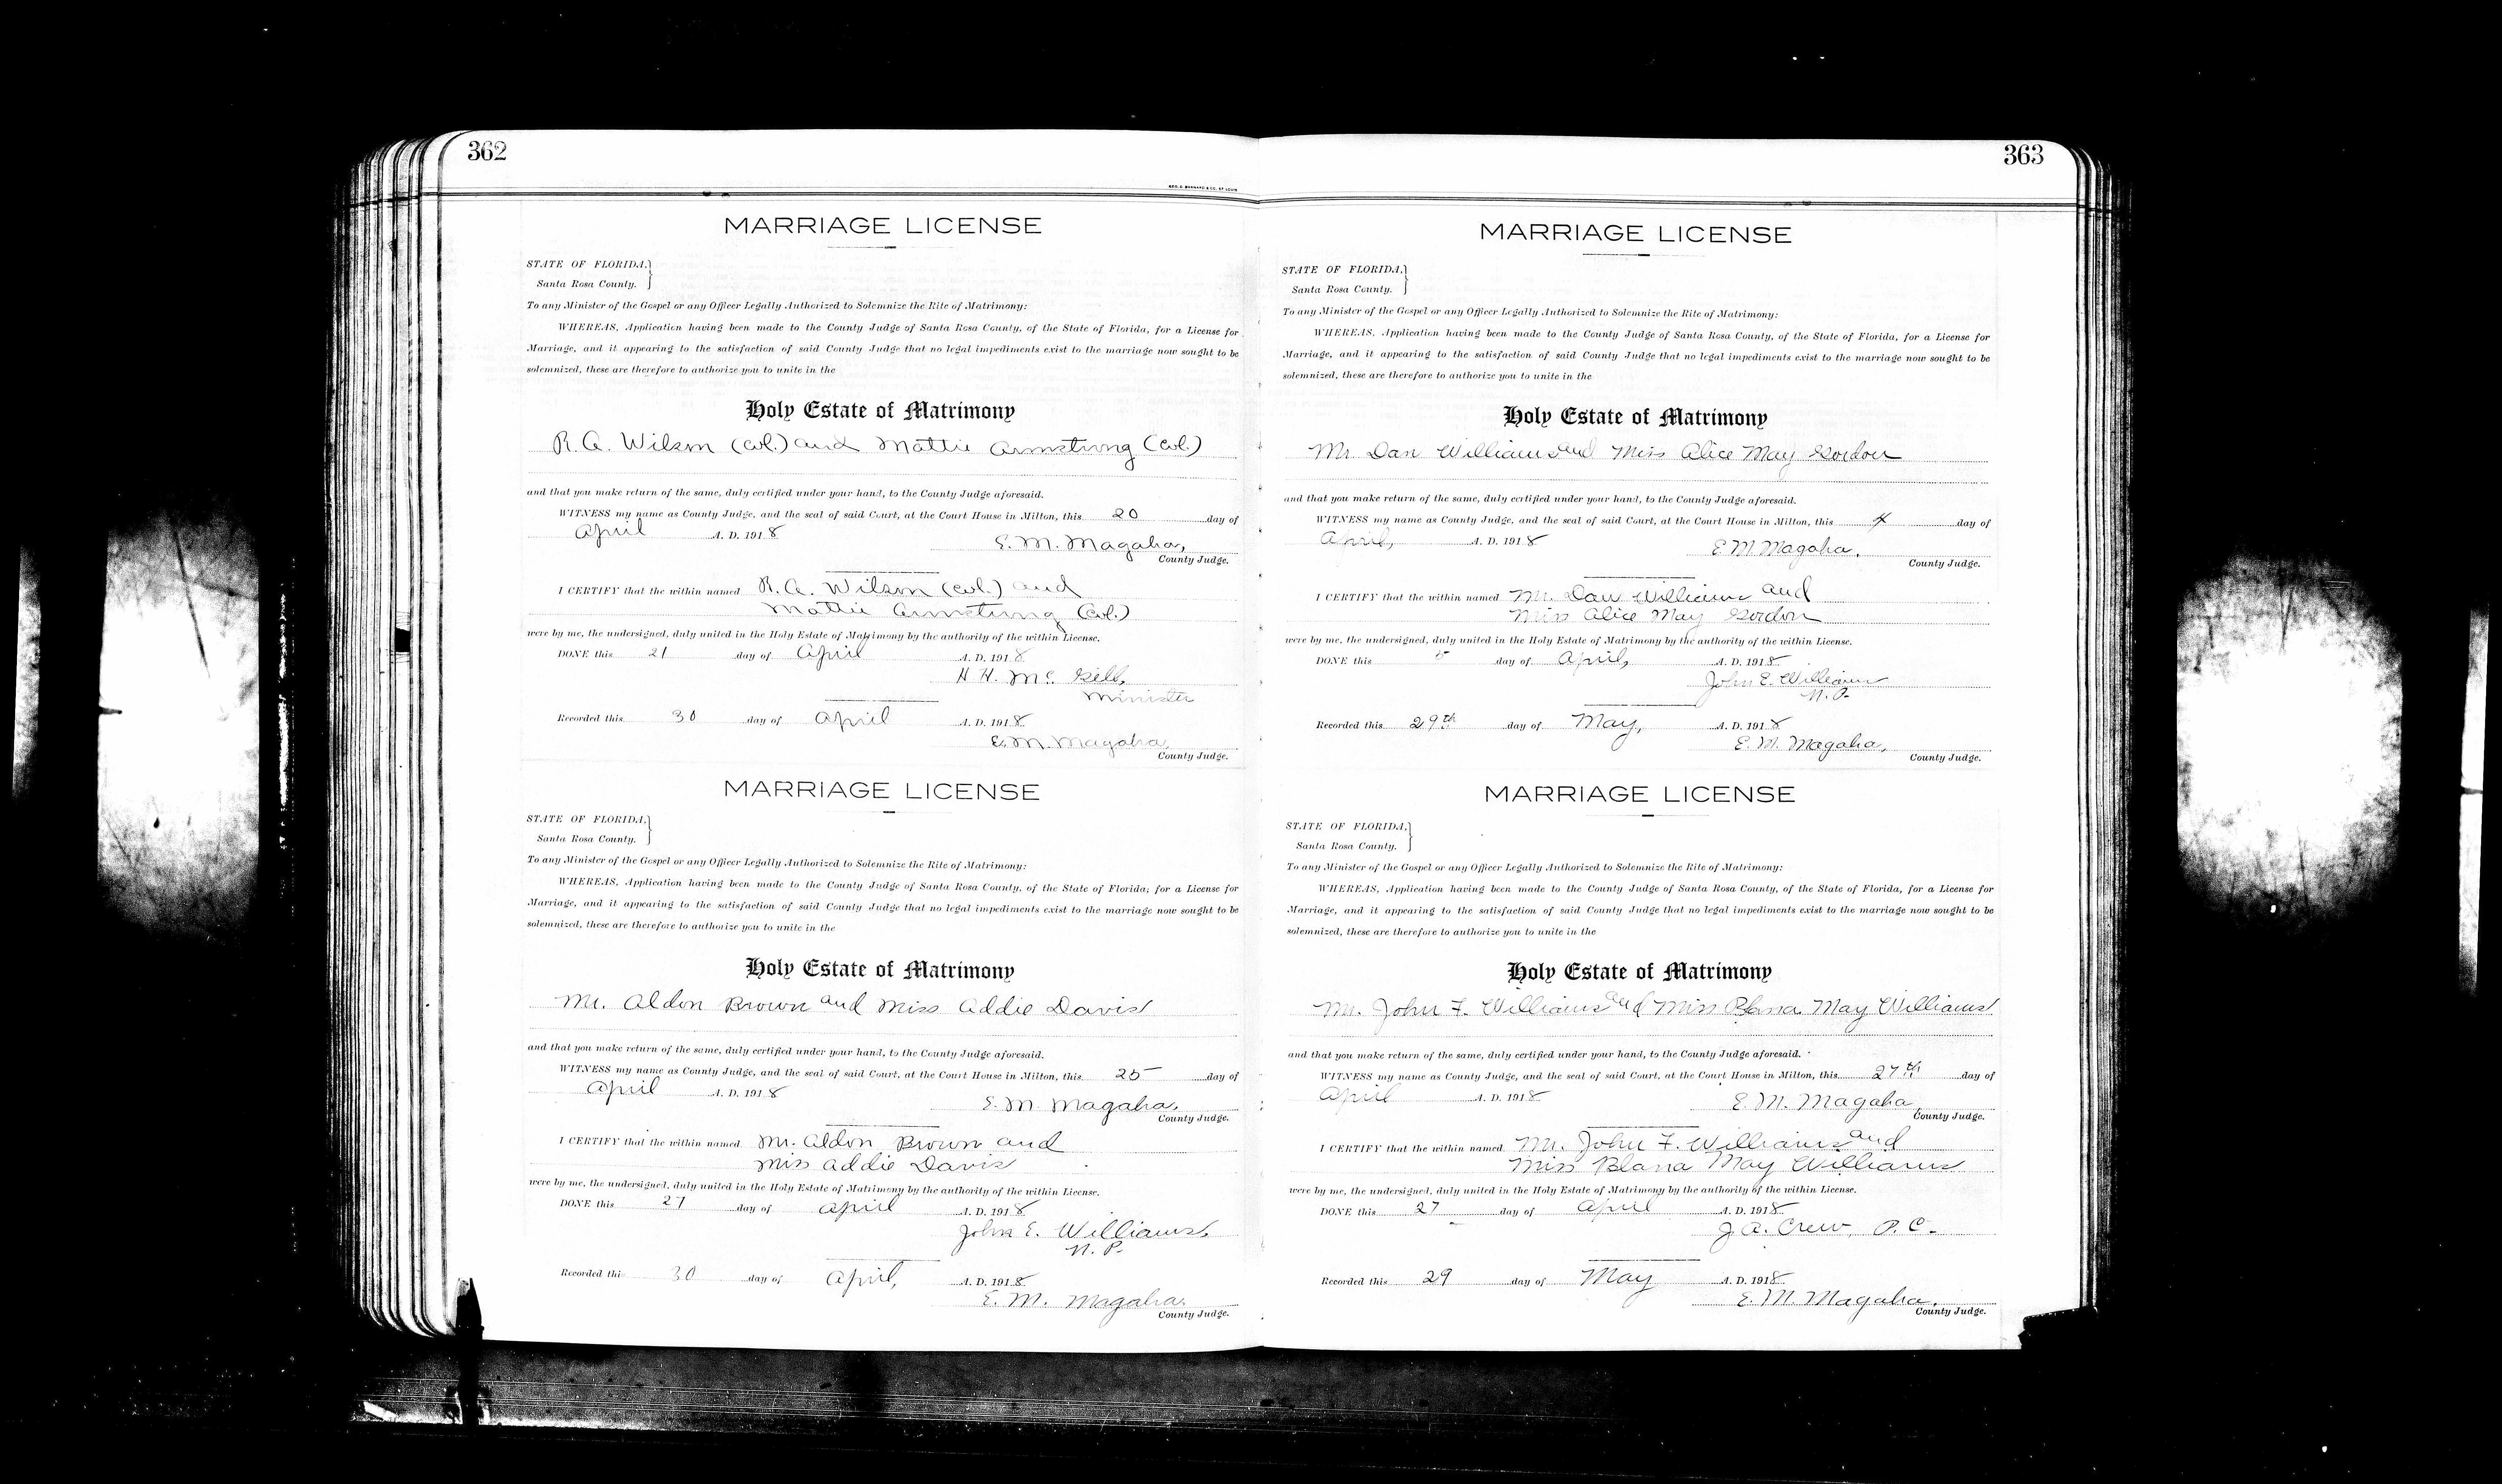 362
GEO. D. BARNARD & CO. ST. LOUIS
MARRIAGE LICENSE
STATE OF FLORIDA,
Santa Rosa County.
To any Minister of the Gospel or any Officer Legally Authorized to Solemnize the Rite of Matrimony:
WHEREAS, Application having been made to the County Judge of Santa Rosa County, of the State of Florida, for a License for
Marriage, and it appearing to the satisfaction of said County Judge that no legal impediments exist to the marriage now sought to be
solemnized, these are therefore to authorize you to unite in the
Holy Estate of Matrimony
R.A. Wilson (Col.) and Mattie Armstrong (Col.)
and that you make return of the same, duly certified under your hand, to the County Judge aforesaid.
WITNESS my name as County Judge, and the seal of said Court, at the Court House in Milton, this 20 day of
April A. D. 1918
E. M. Magaha,
County Judge.
I CERTIFY that the within named R.A. Wilson (Col.) and
Mattie Armstrong (Col.)
were by me, the undersigned, duly united in the Holy Estate of Matrimony by the authority of the within License.
DONE this 21 day of April A. D. 1918
H.H. Mc. Gill,
Minister
Recorded this 30 day of April A. D. 1918
E. M. Magaha,
County Judge.
MARRIAGE LICENSE
STATE OF FLORIDA,
Santa Rosa County.
To any Minister of the Gospel or any Officer Legally Authorized to Solemnize the Rite of Matrimony:
WHEREAS, Application having been made to the County Judge of Santa Rosa County, of the State of Florida; for a License for
Marriage, and it appearing to the satisfaction of said County Judge that no legal impediments exist to the marriage now sought to be
solemnized, these are therefore to authorize you to unite in the
Holy Estate of Matrimony
Mr. Aldon Brown and Miss Addie Davis
and that you make return of the same, duly certified under your hand, to the County Judge aforesaid.
WITNESS my name as County Judge, and the seal of said Court, at the Court House in Milton, this 25 day of
April A. D. 1918
E. M. Magaha,
County Judge.
I CERTIFY that the within named Mr. Aldon Brown and
Miss Addie Davis
were by me, the undersigned, duly united in the Holy Estate of Matrimony by the authority of the within License.
DONE this 27 day of April A. D. 1918
John E. Williams,
N. P.
Recorded this 30 day of April, A. D. 1918
E. M. Magaha.
County Judge.
363
MARRIAGE LICENSE
STATE OF FLORIDA,
Santa Rosa County.
To any Minister of the Gospel or any Officer Legally Authorized to Solemnize the Rite of Matrimony:
WHEREAS, Application having been made to the County Judge of Santa Rosa County, of the State of Florida, for a License for
Marriage, and it appearing to the satisfaction of said County Judge that no legal impediments exist to the marriage now sought to be
solemnized, these are therefore to authorize you to unite in the
Holy Estate of Matrimony
Mr. Dan Williams and Miss Alice May Gordon
and that you make return of the same, duly certified under your hand, to the County Judge aforesaid.
WITNESS my name as County Judge, and the seal of said Court, at the Court House in Milton, this 4 day of
April, A. D. 1918
E. M. Magaha.
County Judge.
I CERTIFY that the within named Mr. Dan Williams and
Miss Alice May Gordon
were by me, the undersigned, duly united in the Holy Estate of Matrimony by the authority of the within License.
DONE this 5 day of April, A. D. 1918
John E. Williams
N. P.
Recorded this 29th day of May, A. D. 1918
E. M. Magaha,
County Judge.
MARRIAGE LICENSE
STATE OF FLORIDA,
Santa Rosa County.
To any Minister of the Gospel or any Officer Legally Authorized to Solemnize the Rite of Matrimony:
WHEREAS, Application having been made to the County Judge of Santa Rosa County, of the State of Florida, for a License for
Marriage, and it appearing to the satisfaction of said County Judge that no legal impediments exist to the marriage now sought to be
solemnized, these are therefore to authorize you to unite in the
Holy Estate of Matrimony
Mr. John F. Williams and Miss Blana May Williams
and that you make return of the same, duly certified under your hand, to the County Judge aforesaid.
WITNESS my name as County Judge, and the seal of said Court, at the Court House in Milton, this 27th day of
April A. D. 1918
E. M. Magaha,
County Judge.
I CERTIFY that the within named Mr. John F. Williams and
Miss Blana May Williams
were by me, the undersigned, duly united in the Holy Estate of Matrimony by the authority of the within License.
DONE this 27 day of April A. D. 1918
J. A. Crew, P. C.
Recorded this 29 day of May A. D. 1918
E. M. Magaha.
County Judge.